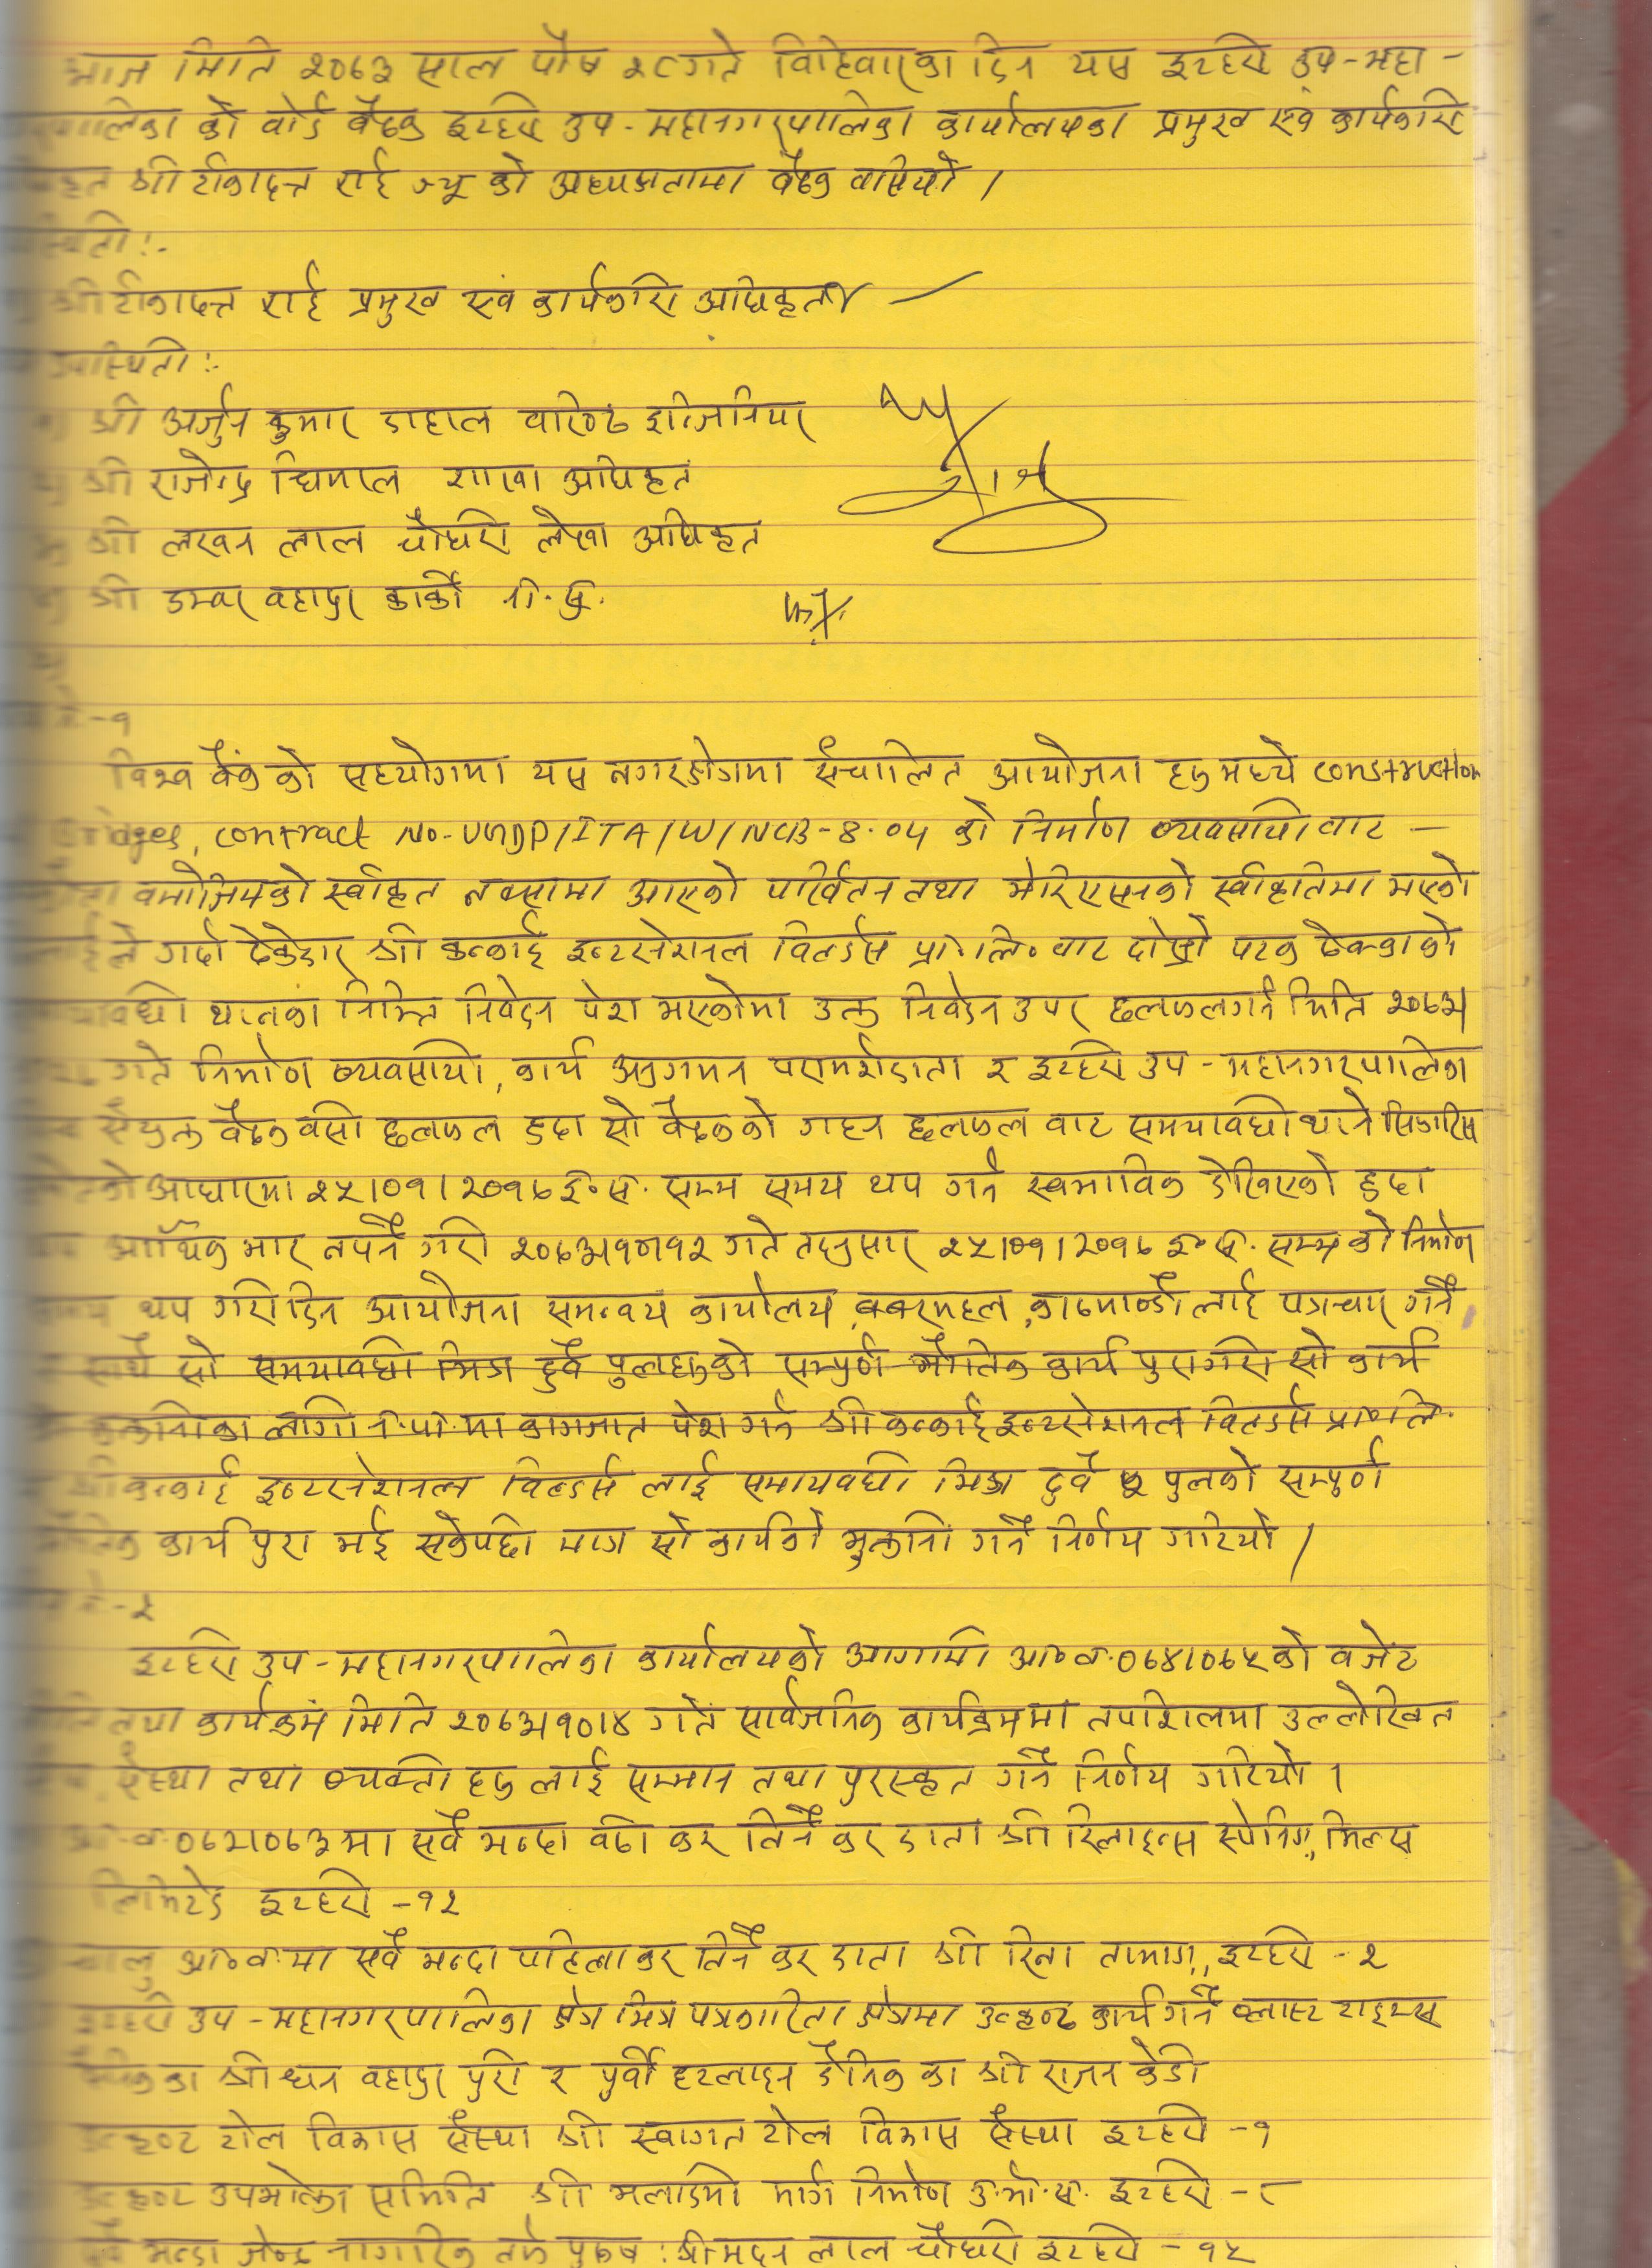 आज मिति २०७३ साल पौष २८ गते विहिवारका दिन यस इटहरी उप-महा-
को वोर्ड वैठक इटहरी उप-महानगरपालिका कार्यालयका प्रमुख एवं कार्यकारी
श्री टीकादत्त राई ज्यू को अध्यक्षतामा वैठक वसियो ।
श्री टीकादत्त राई प्रमुख एवं कार्यकारी अधिकृत
श्री अर्जुन कुमार दाहाल वरिष्ठ इन्जिनियर
श्री राजेन्द्र घिमाल शाखा अधिकृत
श्री लखन लाल चौधरी लेखा अधिकृत
श्री डम्वर वहादुर कार्की
-१
विश्व वैंक को सहयोगमा यस नगरक्षेत्रमा संचालित आयोजना हरु मध्ये construction
Bridges, contract No-UGDP/ITA/W/NCB-8.04 को निर्माण व्यवसायी वाट -
वमोजिमको स्वीकृत नक्सामा आएको परिर्वतन तथा भेरिएसनको स्वीकृतिमा भएको
गर्दा ठेकेदार श्री कन्काई इन्टरनेशनल विल्डर्स प्रा.लि. वाट दोस्रो पटक ठेक्काको
थपका निम्ति निवेदन पेश भएकोमा उक्त निवेदन उपर छलफल गर्न मिति २०७३।
गते निर्माण व्यवसायी, कार्य अनुगमन परामर्शदाता र इटहरी उप-महानगरपालिका
संयुक्त वैठक वसी छलफल हुदा सो वैठकको गहन छलफल वाट समयावधी थप्ने सिफारिस
आधारमा २५।०१।२०१७ ई.सं. सम्म समय थप गर्न स्वभाविक देखिएको हुदा
आर्थिक भार नपर्ने गरी २०७३।१०।१२ गते तद्नुसार २५।०१।२०१७ ई.सं. सम्म को निर्माण
थप गरीदिन आयोजना समन्वय कार्यालय, ववरमहल, काठमाण्डौ लाई पत्राचार गर्ने
सो समयावधी भित्र दुवै पुलहरुको सम्पुर्ण भौतिक कार्य पुरा गरी सो कार्य
भुक्तानीका लागी न.पा. मा कागजात पेश गर्न श्री कन्काई इन्टरनेशनल विल्डर्स प्रा.लि.
श्री कन्काई इन्टरनेशनल विल्डर्स लाई समायवधी भित्र दुवै पुलको सम्पुर्ण
भौतिक कार्य पुरा भई सकेपछी मात्र सो कार्यको भुक्तानी गर्ने निर्णय गरियो ।
-२
इटहरी उप-महानगरपालिका कार्यालयको आगामी आ.व. ०७४।०७५ को वजेट
तथा कार्यक्रम मिति २०७३।१०।४ गते सार्वजनिक कार्यक्रममा तपशिलमा उल्लेखित
संस्था तथा व्यक्ती हरु लाई सम्मान तथा पुरस्कृत गर्ने निर्णय गरियो ।
आ.व. ०७२।०७३ मा सवै भन्दा वढी कर तिर्ने कर दाता श्री रिलाइन्स स्पेनिङ्ग, मिल्स
लिमिटेड इटहरी -१२
चालु आ.व. मा सवै भन्दा पहिला कर तिर्ने कर दाता श्री रिता तामाङ्ग, इटहरी -२
इटहरी उप-महानगरपालिका क्षेत्र भित्र पत्रकारिता क्षेत्रमा उत्कृष्ट कार्य गर्ने व्लास्ट टाइम्स
दैनिक का श्री धन वहादुर पुरी र पुर्वी हटलाइन दैनिक का श्री राजन केडी
उत्कृष्ट टोल विकास संस्था श्री स्वागत टोल विकास संस्था इटहरी -१
उत्कृष्ट उपभोक्ता समिति श्री मार्ग निर्माण उ.भो.स. इटहरी -८
सवै भन्दा जेष्ठ नागरिक तर्फ पुरुष : श्री मदन लाल चौधरी इटहरी -१५